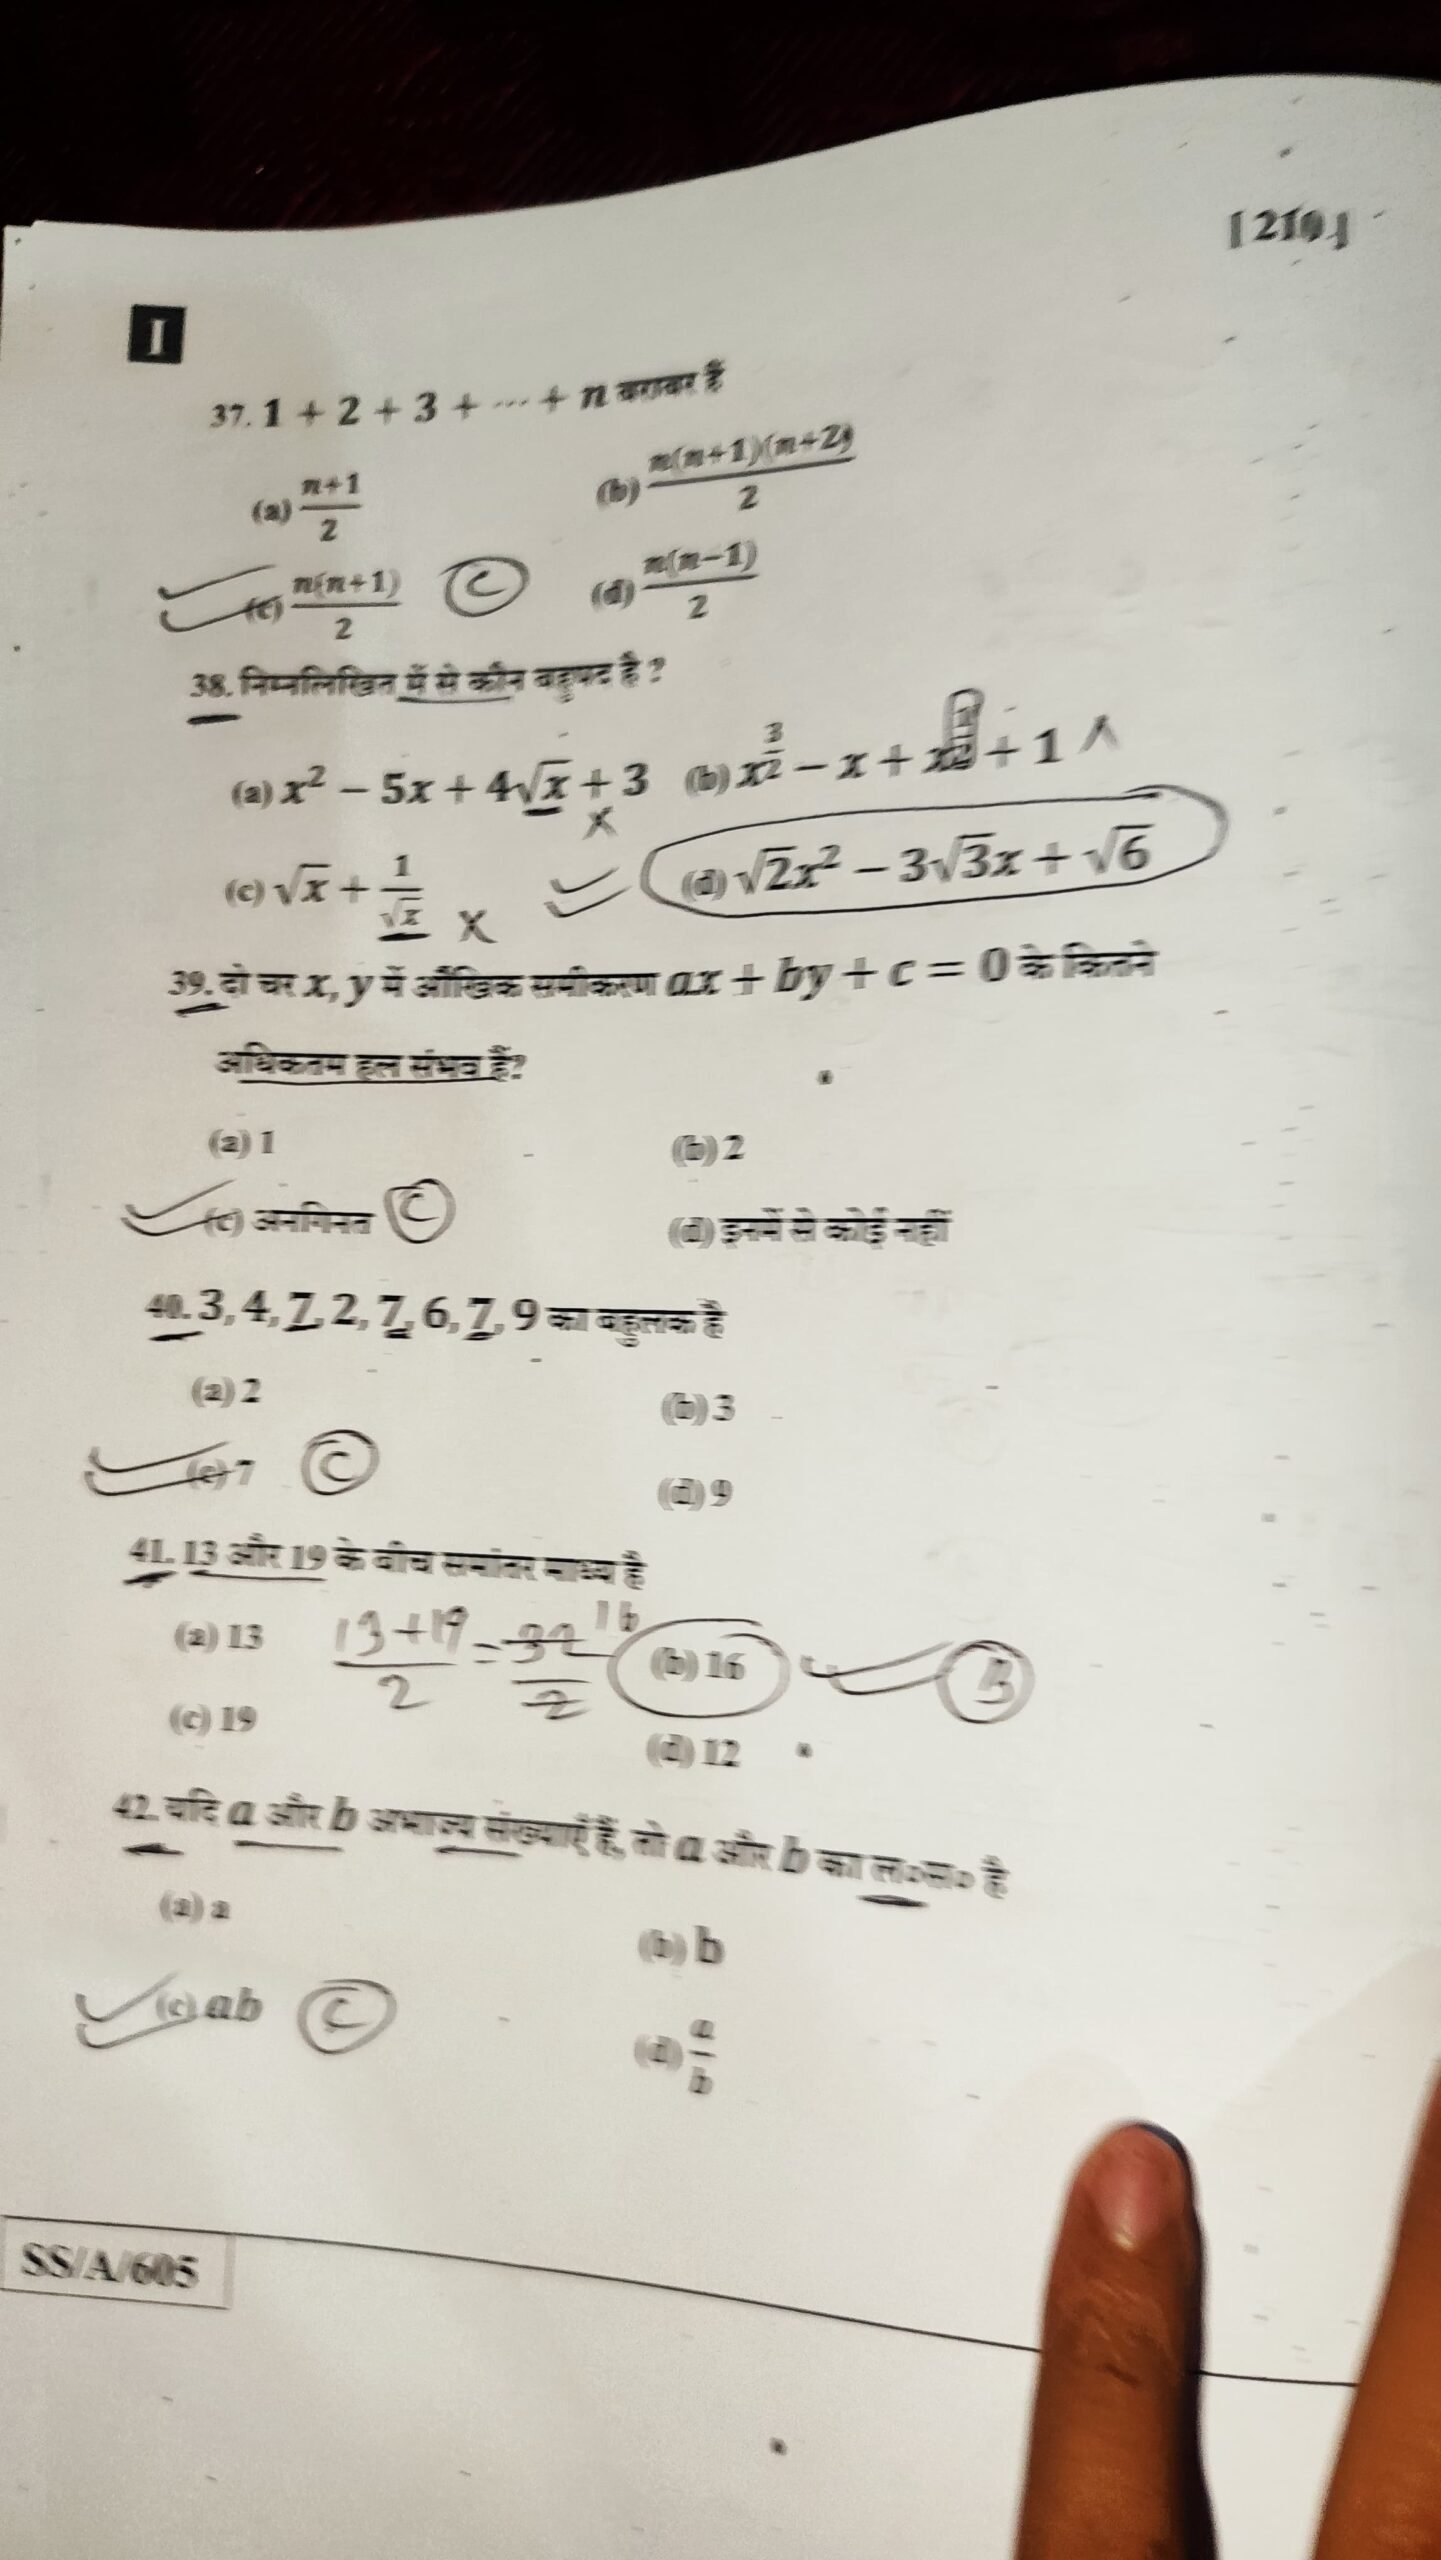 [210]
I
37. 1 + 2 + 3 + ... + n बराबर हैं
(a) n+1/2 (b) n(n+1)(n+2)/2
(c) n(n+1)/2 C (d) n(n−1)/2
38. निम्नलिखित में से कौन बहुपद है ?
(a) x² − 5x + 4√x + 3 (b) x^3/2 − x + x^1/2 + 1
(c) √x + 1/√x (d) √2x² − 3√3x + √6
39. दो चर x, y में औखिक समीकरण ax + by + c = 0 के कितने
अधिकतम हल संभव हैं?
(a) 1 (b) 2
(c) अनगिनत C (d) इनमें से कोई नहीं
40. 3, 4, 7, 2, 7, 6, 7, 9 का बहुलक है
(a) 2 (b) 3
(c) 7 C (d) 9
41. 13 और 19 के बीच समांतर माध्य है
(a) 13 13+19/2 = 32/2 16 (b) 16 B
(c) 19 (d) 12
42. यदि a और b अभाज्य संख्याएँ हैं, तो a और b का ल०स० है
(a) a (b) b
(c) ab C (d) a/b
SS/A/605